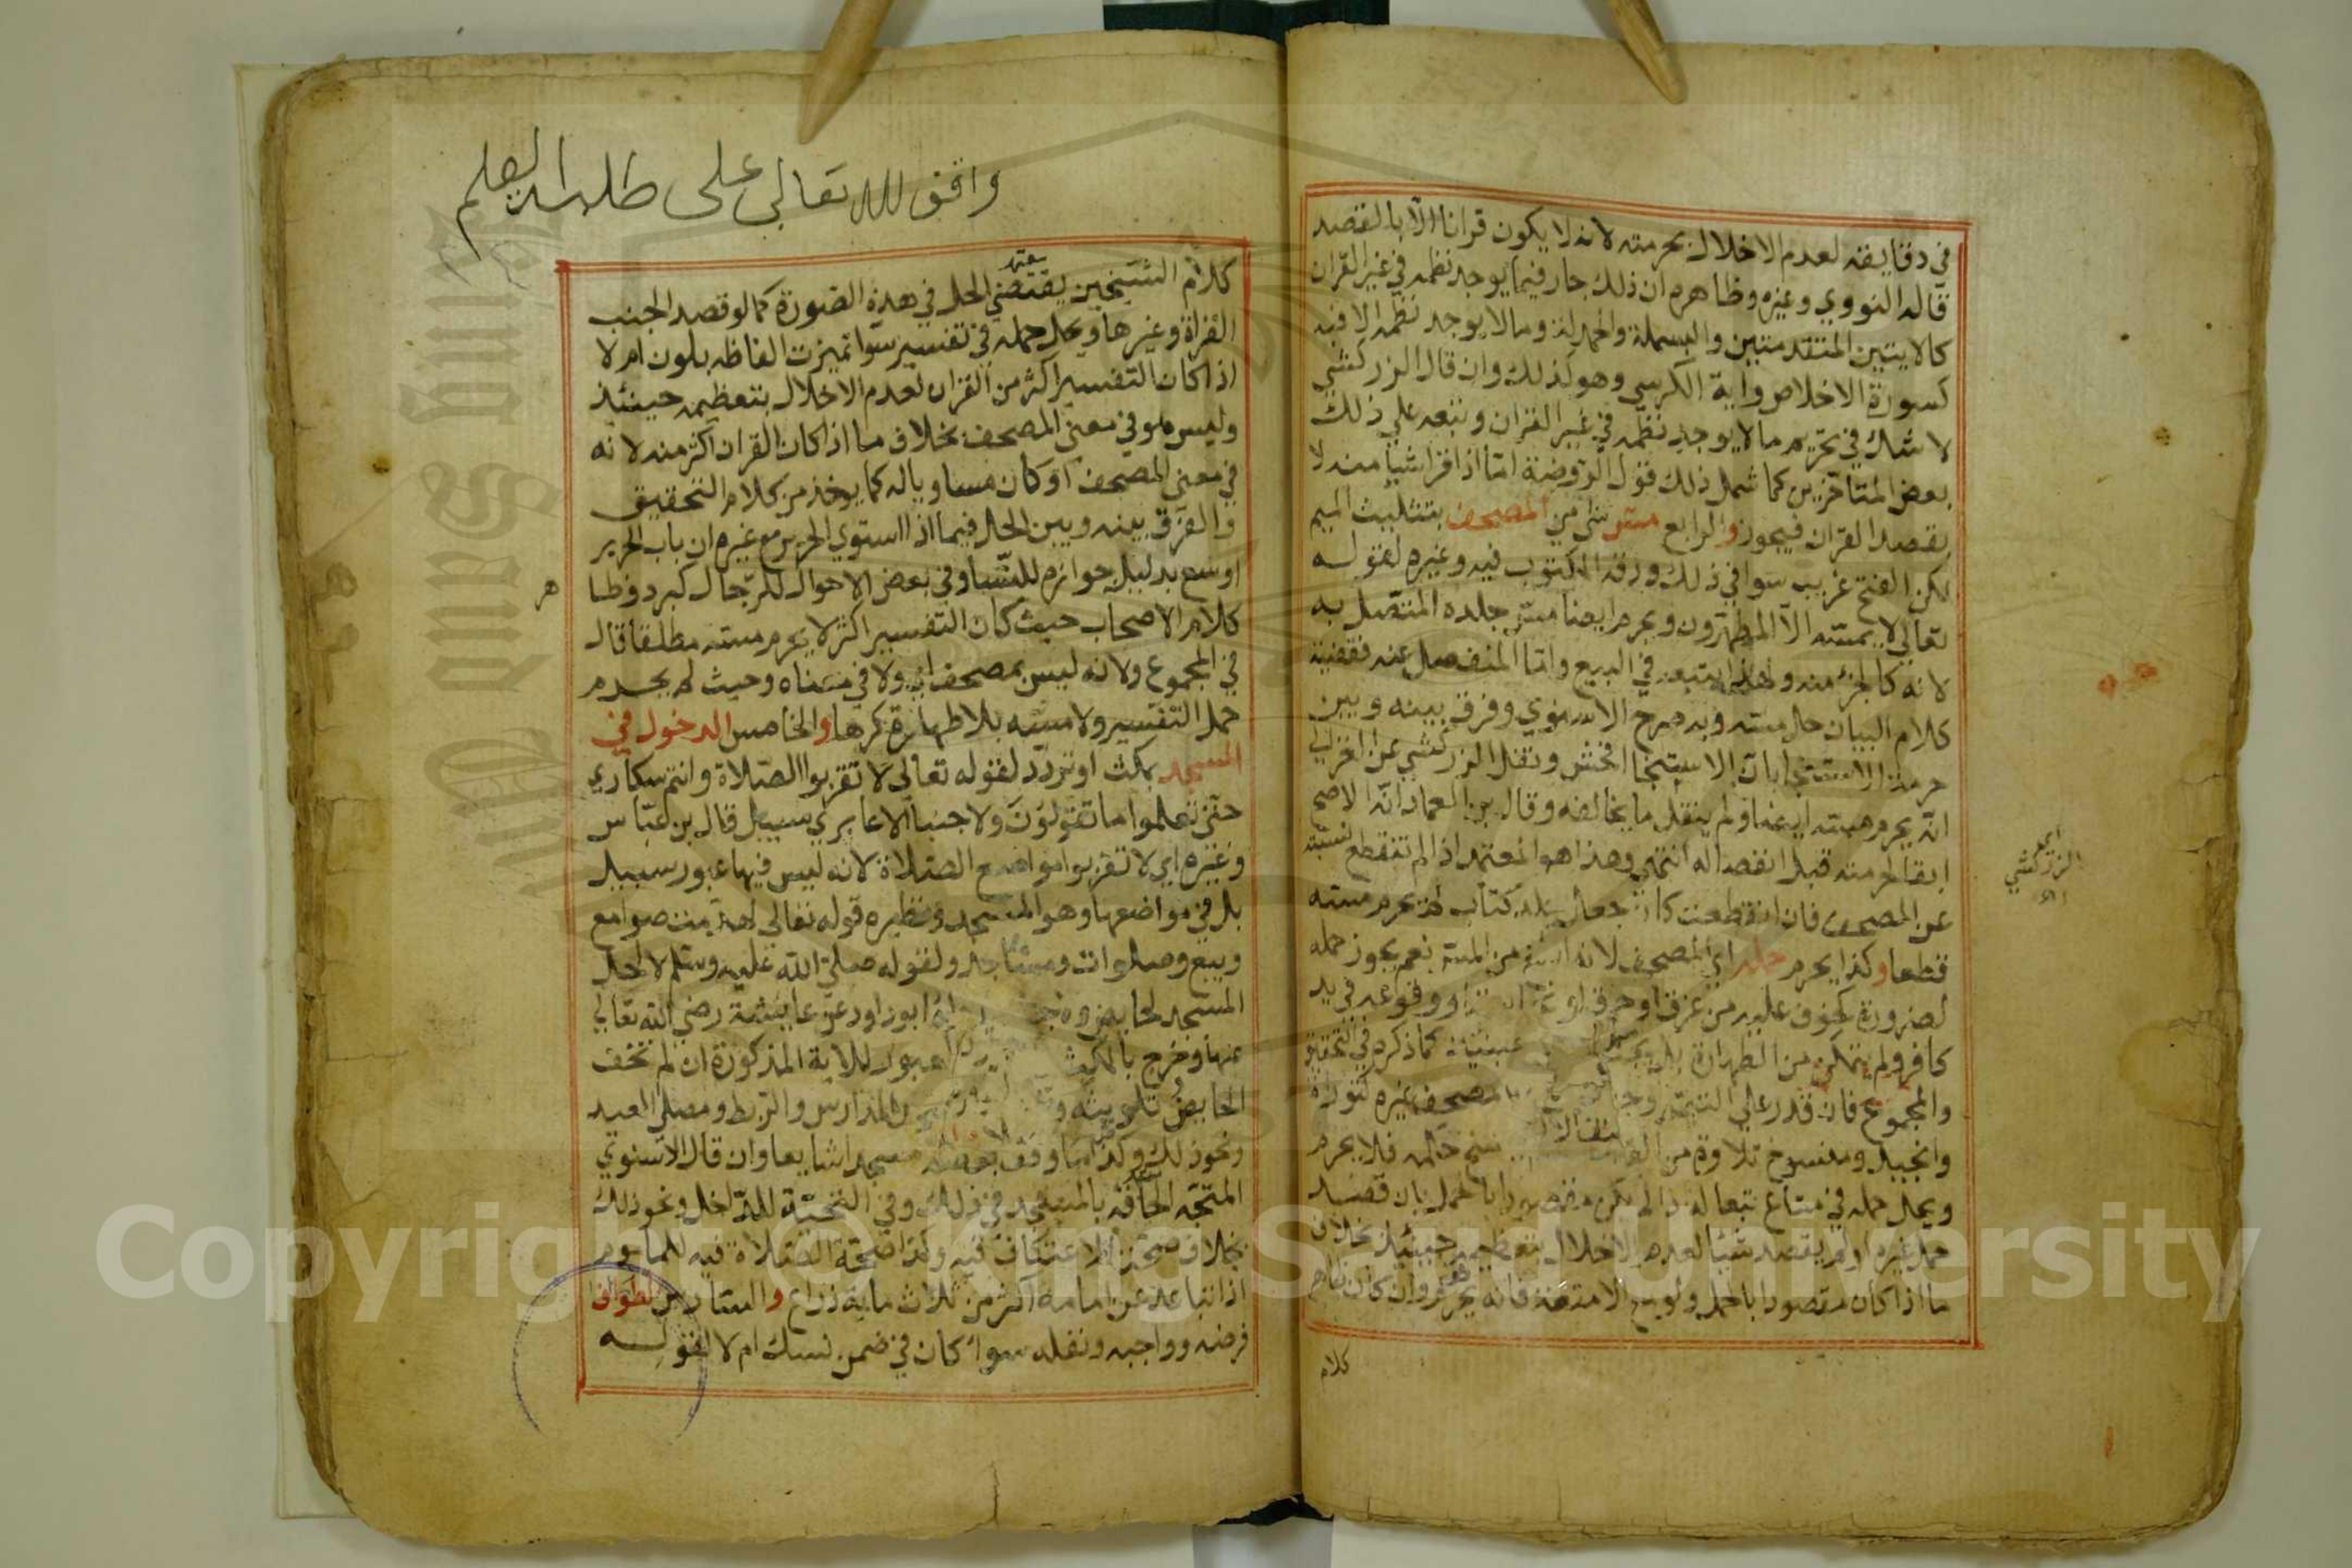 في دقايقه لعدم الاخلال بحرمته لانه لا يكون قرانا الا بالقصد
قاله النووي وغيره وظاهره ان ذلك جار فيما يوجد نظمه في غير القران
كالايتين المتقدمتين والبسملة والحمدلة وما لا يوجد نظمه الا فيه
كسورة الاخلاص واية الكرسي وهو كذلك وان قال الزركشي
لا شك في تحريم ما لا يوجد نظمه في غير القران وتبعه علي ذلك
بعض المتاخرين كما شمل ذلك قول الروضة اما اذا قرا شيا منه لا
بقصد القران فيجوز والرابع مس شي من المصحف بتثليث الميم
لكن الفتح غريب سوا في ذلك ورقه المكتوب فيه وغيره لقوله
تعالي لا يمسه الا المطهرون ويحرم ايضا مس جلده المتصل به
لانه كالجزء منه ولهذا يتبعه في البيع واما المنفصل عنه فقضية
كلام البيان حل مسه وبه صرح الاسنوي وفرق بينه وبين
حرمة الاستنجا بان الاستنجا افحش ونقل الزركشي عن الغزالي
انه يحرم مسه ايضا ولم ينقل ما يخالفه وقال بن العماد انه الاصح
ابقا لحرمته قبل انفصاله انتهي وهذا هو المعتمد اذا لم تنقطع نسبته
عن المصحف فان انقطعت كان جعل جلد كتاب لم يحرم مسه
قطعا وكذا يحرم حمله اي المصحف لانه ابلغ من المس نعم يجوز حمله
لضرورة كخوف عليه من غرق او حرق او نجاسة او وقوعه في يد
كافر ولم يتمكن من الطهارة بل يجب حينئذ كما ذكره في التحقيق
والمجموع فان قدر علي التيمم وجب المصحف غيره كتوراة
وانجيل ومنسوخ تلاوة من القران ينسخ حكمه فلا يحرم
ويحل حمله في متاع تبعا له اذا لم يكن مقصودا بالحمل بان قصد
حمل غيره او لم يقصد شيئا لعدم الاخلال بتعظيمه حينئذ بخلاف
ما اذا كان مقصودا بالحمل ولو مع الامتعة فانه يحرم وان كان ظاهر
كلام
اي
الزركشي
وقف لله تعالي على طلبة العلم
كلام الشيخين يقتضي الحل في هذه الصورة كما لو قصد الجنب
القراة وغيرها ويحل حمله في تفسير سوا تميزت الفاظه بلون ام لا
اذا كان التفسير اكثر من القران لعدم الاخلال بتعظيمه حينئذ
وليس هو في معنى المصحف بخلاف ما اذا كان القران اكثر منه لانه
في معنى المصحف او كان مساويا له كما يوخذ من كلام التحقيق
والفرق بينه وبين الحل فيما اذا استوي الحرير مع غيره ان باب الحرير
اوسع بدليل جوازه للنسا وفي بعض الاحوال للرجال كبرد وظا
هر
كلام الاصحاب حيث كان التفسير اكثر لا يحرم مسه مطلقا قال
في المجموع ولانه ليس بمصحف اي ولا في معناه وحيث لم يحرم
حمل التفسير ولا مسه بلا طهارة كرها والخامس الدخول في
المسجد بمكث او تردد لقوله تعالى لا تقربوا الصلاة وانتم سكاري
حتي تعلموا ما تقولون ولا جنبا الا عابري سبيل قال بن عباس
وغيره اي لا تقربوا مواضع الصلاة لانه ليس فيها عبور سبيل
بل في مواضعها وهو المسجد ونظيره قوله تعالى لهدمت صوامع
وبيع وصلوات ومساجد ولقوله صلي الله عليه وسلم لا احل
المسجد لحايض ولا جنب رواه ابو داود عن عايشة رضي الله تعالي
عنها وخرج بالمكث العبور للاية المذكورة ان لم تخف
الحايض تلويثه المدارس والربط ومصلى العيد
ونحو ذلك وكذا ما وقف بعضه مسجدا شايعا وان قال الاسنوي
المتجه الحاقه بالمسجد في ذلك وفي التحية للداخل ونحو ذلك
بخلاف صحة الاعتكاف فيه وكذا صحة الصلاة فيه للماموم
اذا تباعد عن امامه اكثر من ثلاث ماية ذراع والسادس الطواف
فرضه وواجبه ونفله سواء كان في ضمن نسك ام لا لقوله
Copyright © King Saud University